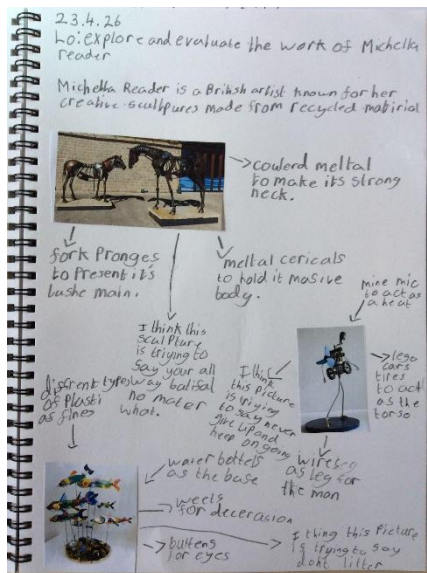 23.4.26
Lo: explore and evaluate the work of Michella
reader
Michella Reader is a British artist known for her
creative sculptpures made from recycled matirial
cowlerd meltal
to make its strong
neck.
fork Pronges
to Present it's
lushe main.
meltal cericals
to hold it masive
body.
I think this
sculpture
is triying to
say your all
way batifal
no mater
what.
mine mic
to act as
a heat
lego
cars
tires
to act
as the
torso
I think
this picture
is triying
to say never
give up and
keep on going
wires
as leg for
the man
diffrent types
of plasti
as fines
water bottels
as the base
weels
for decerasion
buttens
for eyes
I thing this Picture
is trying to say
don't litter